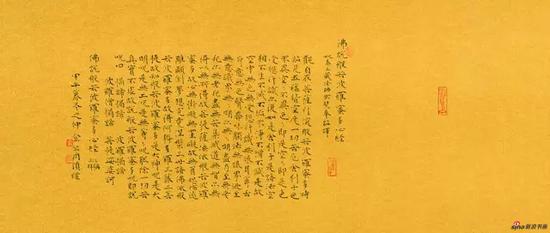 佛說般若波羅蜜多心經
觀自在菩薩行深般若波羅蜜多時
照見五蘊皆空度一切苦厄舍利子色
不異空空不異色色即是空空即是色
受想行識亦復如是舍利子是諸法空
相不生不滅不垢不淨不增不減是故
空中無色無受想行識無眼耳鼻舌
身意無色聲香味觸法無眼界乃至
無意識界無無明亦無無明盡乃至無老
死亦無老死盡無苦集滅道無智亦無
得以無所得故菩提薩埵依般若波羅
蜜多故心無罣礙無罣礙故無有恐怖遠
離顛倒夢想究竟涅槃三世諸佛依般
若波羅蜜多故得阿耨多羅三藐三菩
提故知般若波羅蜜多是大神咒是大
明咒是無上咒是無等等咒能除一切苦
真實不虛故說般若波羅蜜多咒即說
咒曰 揭諦揭諦 波羅揭諦
波羅僧揭諦 菩提薩婆訶
佛說般若波羅蜜多心經
甲午
sina新浪书画